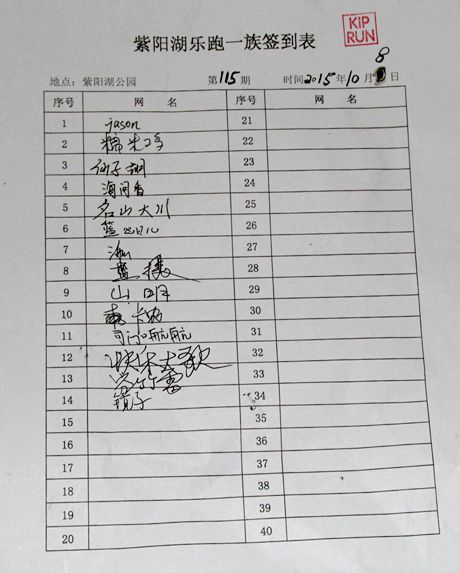 KIP
RUN
紫阳湖乐跑一族签到表
8
地点：紫阳湖公园 第115期 时间2015年10月 日
序号 网 名 序号 网 名
1 jason 21
2 糯米 22
3 23
4 海阔 24
5 名山大川 25
6 蓝 26
7 27
8 蓝 28
9 山明 29
10 30
11 航航 31
12 快乐 32
13 33
14 镜子 34
15 35
16 36
17 37
18 38
19 39
20 40